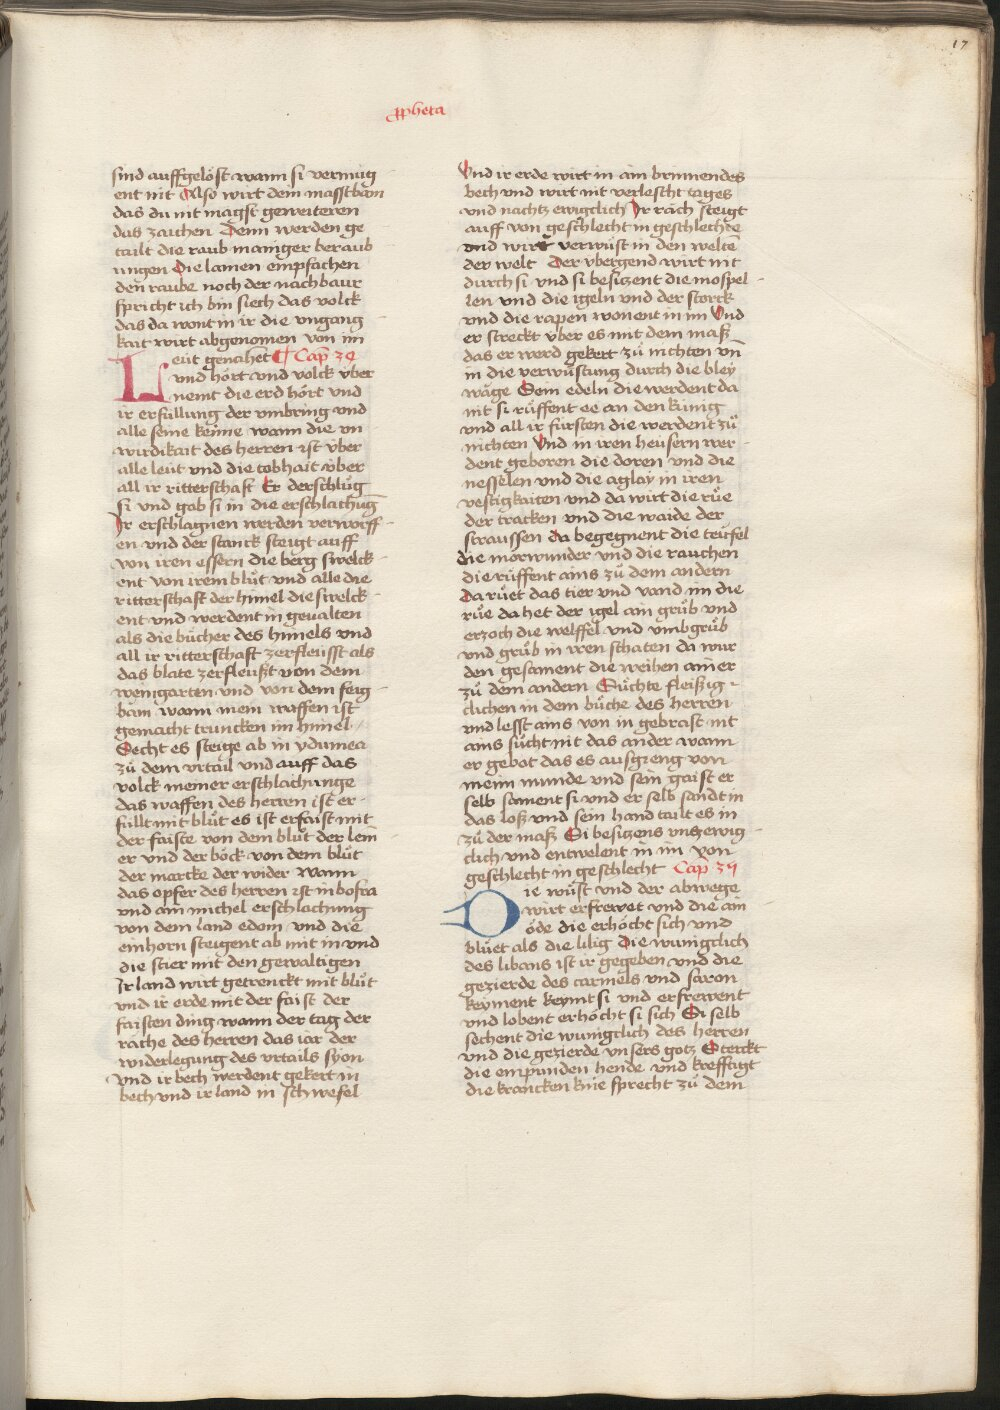 17
ꝓpheta
sind auffgelöst wann si vermüg
ent nit Also wirt dein masstbam
das du nit magst geweiteren
das zaichen Denn werden ge
tailt die raub maniger beraub
ungen Die lamen empfachen
den raube noch der nachbaur
spricht ich bin siech das volck
das da wont in ir die ungang
kait wirt abgenomen von im
Leüt genahet ¶ Cap̄ 34
und hört und volck über
nemt die erd hört und
ir erfüllung der umbring und
alle seine keyme wann die un
wirdikait des herren ist über
alle leüt und die tobhait über
all ir ritterschaft Er derschlůg
si und gab si in die erschlachūg
Ir erschlagnen werden verworff
en und der stanck steigt auff
von iren essern die berg swelck
ent von irem blůt und alle die
ritterschaft der himel die swelck
ent und werdent in gevalten
als die bücher des himels und
all ir ritterschaft zerfleüsst als
das blate zerfleußt von dem
weingarten und von dem feig
bam wann mein waffen ist
gemacht truncken im himel
Secht es steige ab in ydumea
zů dem urtail und auff das
volck meiner erschlachunge
das waffen des herren ist er
füllt mit blůt es ist erfaist mit
der faiste von dem blůt der lem̄
er und der böck von dem blůt
der marcke der wider wann
das opfer des herren ist in bosra
und ain michel erschlachung
von dem land edom und die
einhorn steigent ab mit in und
die stier mit den gewaltigen
Ir land wirt getrenckt mit blůt
und ir erde mit der faist der
faisten ding wann der tag der
räche des herren das iar der
widerlegung des urtails syon
Und ir bech werdent gekert in
bech und ir land in schwefel
Und ir erde wirt in ain brinnendes
bech und wirt nit verlescht tages
und nachtz ewigclich Ir räch steigt
auff von geschlecht in geschlechte
und wirt verwüst in den welte
der welt Der übergend wirt nit
durch si und si besitzent die mospel
len und die igeln und der storck
und die rapen wonent in im Und
er streckt über es mit dem maß
das er werd gekert zů nichten uñ
in die verwüstung durch die bley
wäge Sein edeln die werdent da
nit si růffent ee an den künig
und all ir fürsten die werdent zů
nichten Und in iren heüsern wer
dent geboren die doren und die
nesselen und die aglay in iren
vestigkaiten und da wirt die růe
der tracken und die waide der
straussen Da begegnent die teüfel
die mörwunder und die rauchen
die růffent ains zů dem andern
Da růet das tier und vand im die
růe da het der igel ain grůb und
erzoch die welffel und umbgrůb
und grůb in iren schaten da wur
den gesament die weihen ainer
zů dem andern Sůchte fleißig
clichen in dem bůche des herren
und lesst ains von in gebrast nit
ains sůcht nit das ander wann
er gebot das es ausgieng von
meim munde und sein gaist er
selb sament si und er selb sandt in
das loß und sein hand tailt es in
zů der maß Si besitzens untz ewig
clich und entwelent in im von
geschlecht in geschlecht Cap̄ 35
Die wůst und der abwege
wirt erfrewet und die ain
öde die erhöcht sich und
blüet als die lilig Die wunigclich
des libans ist ir gegeben und die
gezierde des carmels und saron
keyment keymt si und erfrewent
und lobent erhöcht si sich Si selb
sechent die wunigclich des herren
und die gezierde unsers gotz Sterckt
die empunden hende und krefftigt
die krancken knie sprecht zů dem